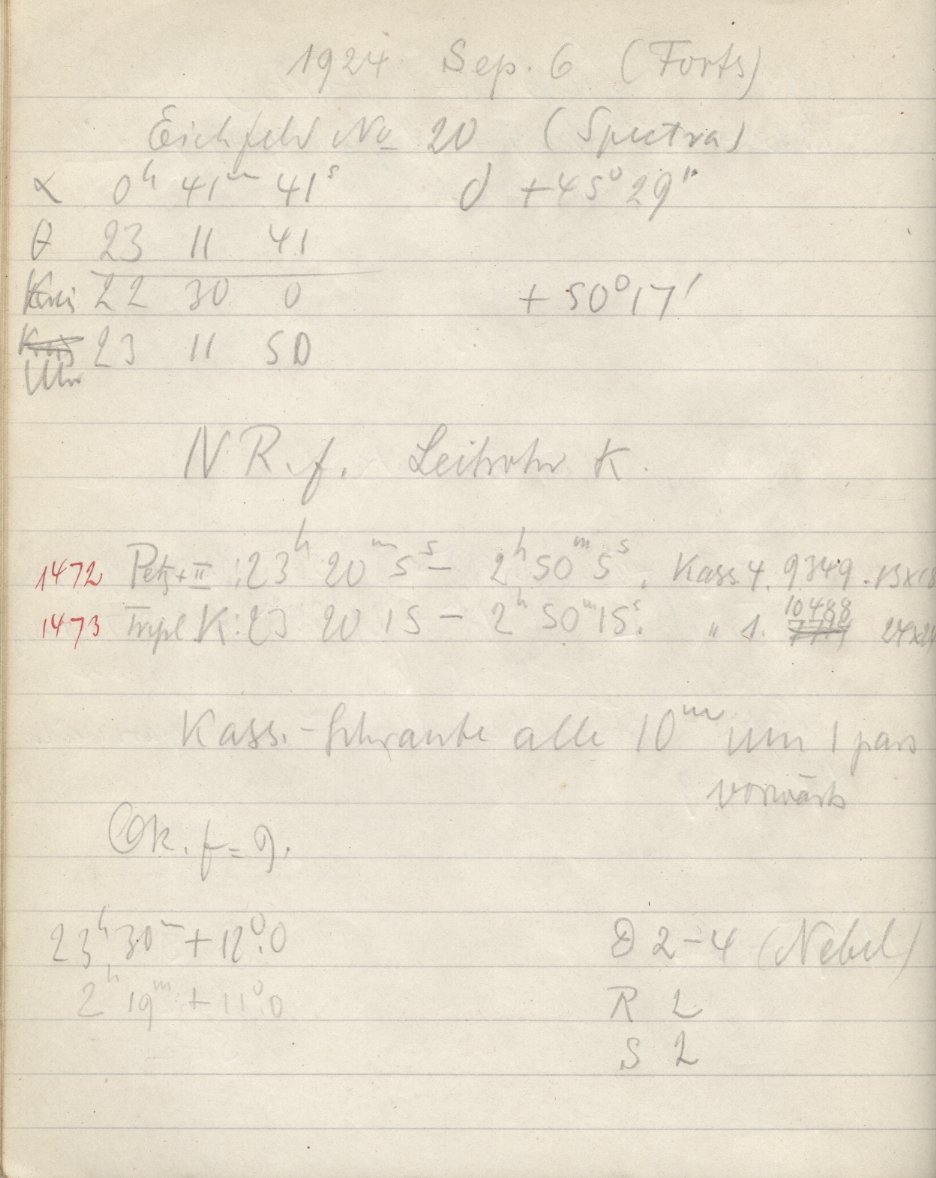 1924 Sep. 6 (Forts)
Eichfeld No 20 (Spectra)
α 0h 41m 41s δ +45° 29"
θ 23 11 41
Kreis 22 30 0 +50° 17'
23 11 50
Uhr
N R. f. Leitrohr K.
1472 Petz + II : 23h 20m 5s – 2h 50m 5s. Kass 4. 9349. 13x18
1473 Tripl K : 23 20 15 – 2h 50m 15s. " 1. 10488 24x24
Kass.-Schraube alle 10m um 1 pars
vorwärts
Ok. f = 9.
23h 30m +12°.0 D 2–4 (Nebel)
2h 19m +11°.0 R 2
S 2